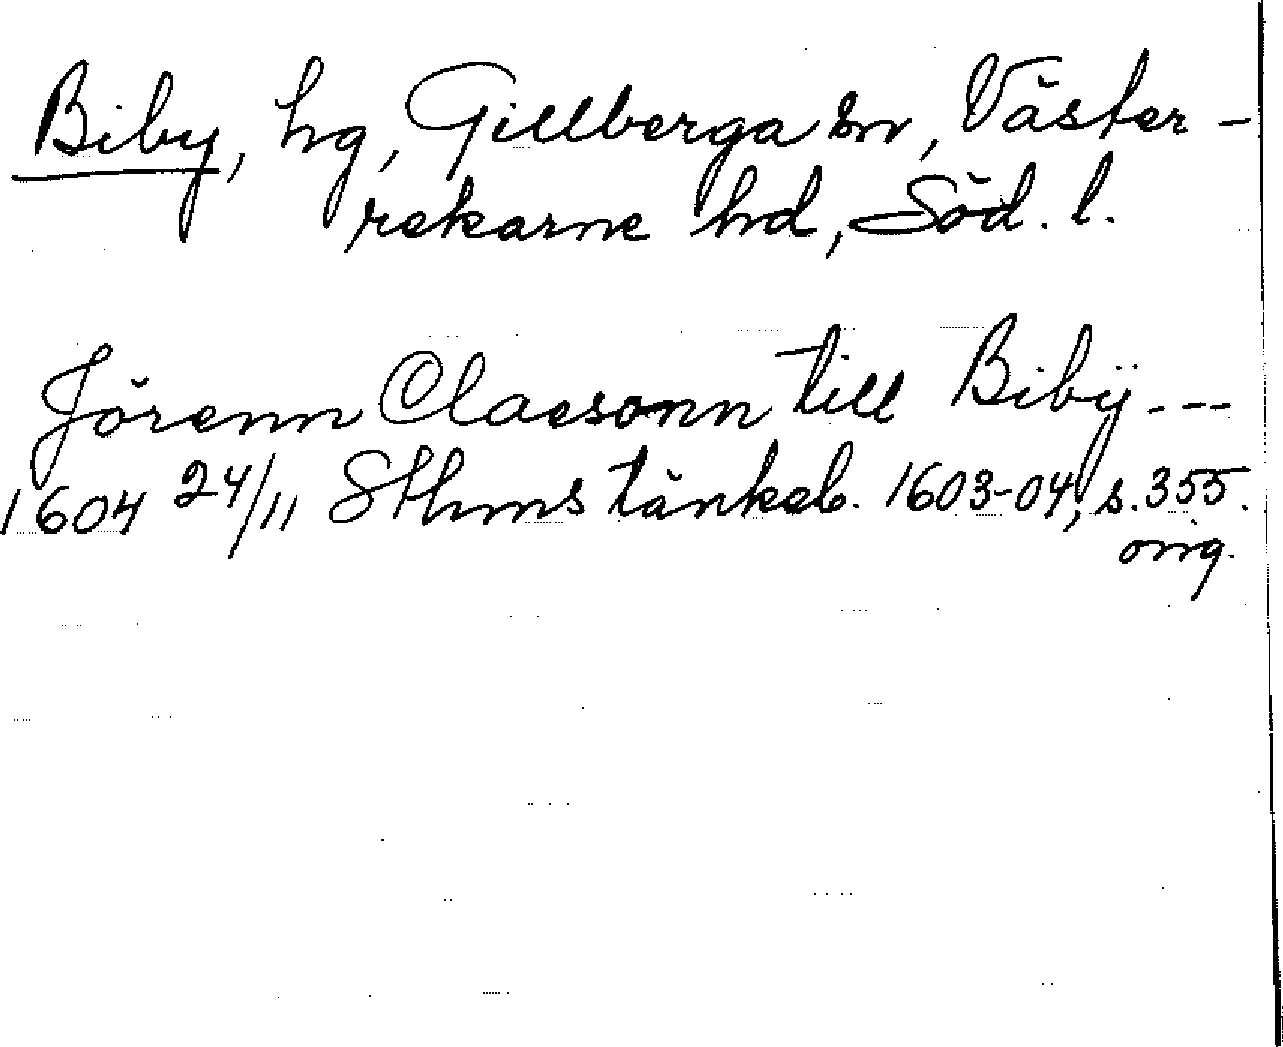 Biby, hg, Gillberga sn, Väster-
rekarne hd, Söd. l.
Jörenn Claesonn till Bibÿ ---
1604 24/11 Sthms tänkeb. 1603-04, s. 355.
orig.